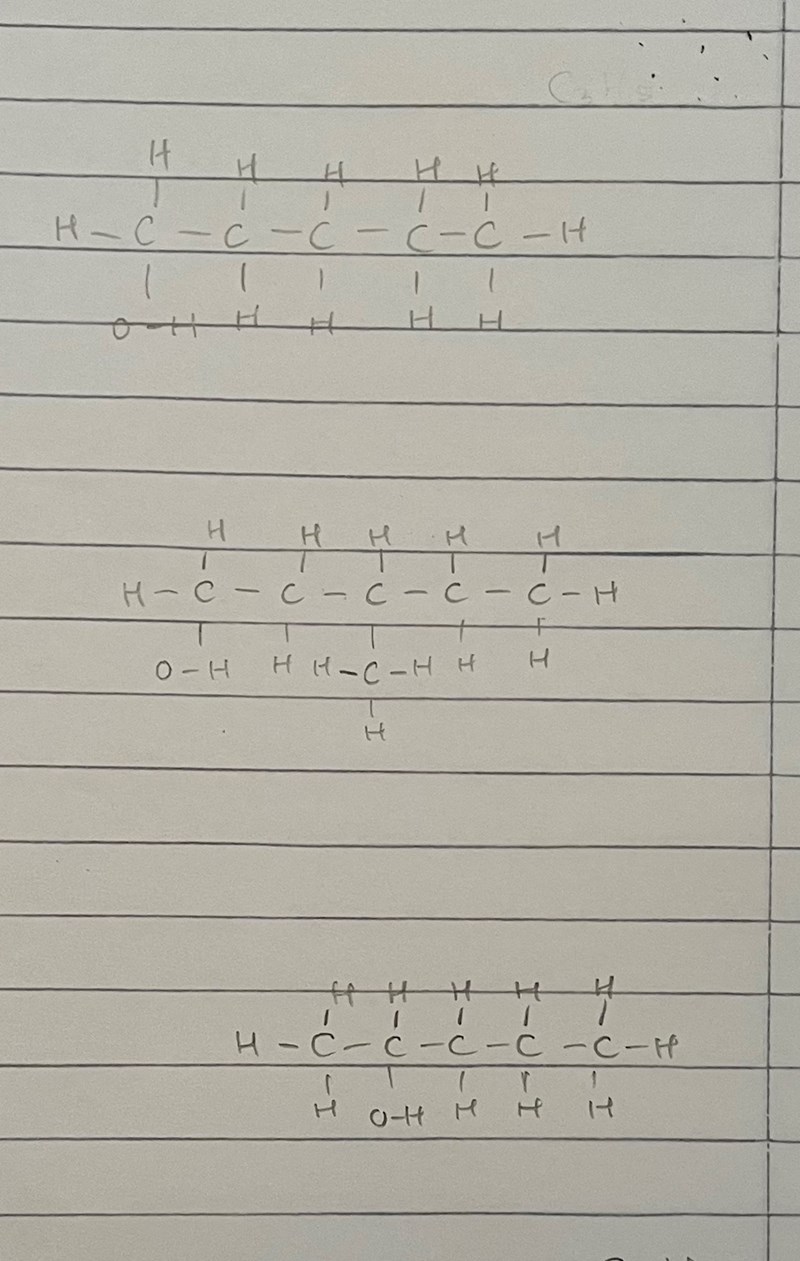 H H H H H
H – C – C – C – C – C – H
| | | | |
O – H H H H H
H H H H H
H – C – C – C – C – C – H
O – H H H – C – H H H
H
H H H H H
H – C – C – C – C – C – H
H O-H H H H